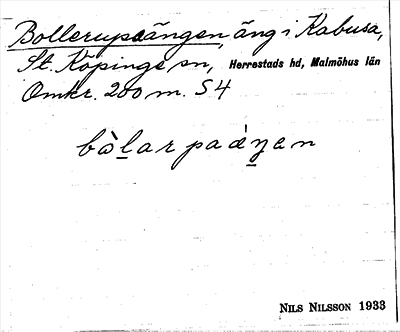 Bollerupsängen, äng i Kabusa,
St. Köpinge sn, Herrestads hd, Malmöhus län
Omkr. 200 m. S 4
bòl̲arpaàŋ̲en
NILS NILSSON 1933